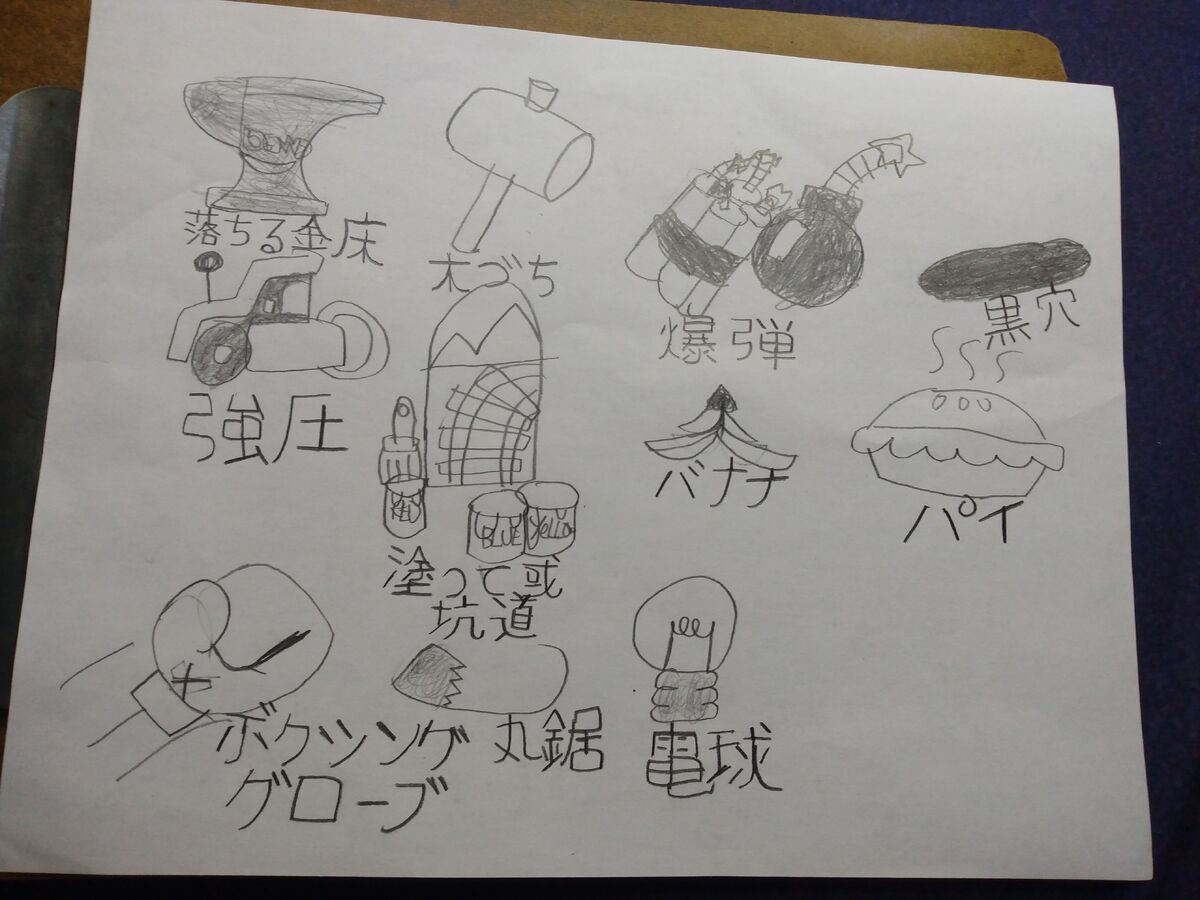 落ちる金床
木づち
爆弾
黒穴
強圧
バナナ
パイ
BLUE
Yello
塗って或
坑道
ボクシング
グローブ
丸鋸
電球